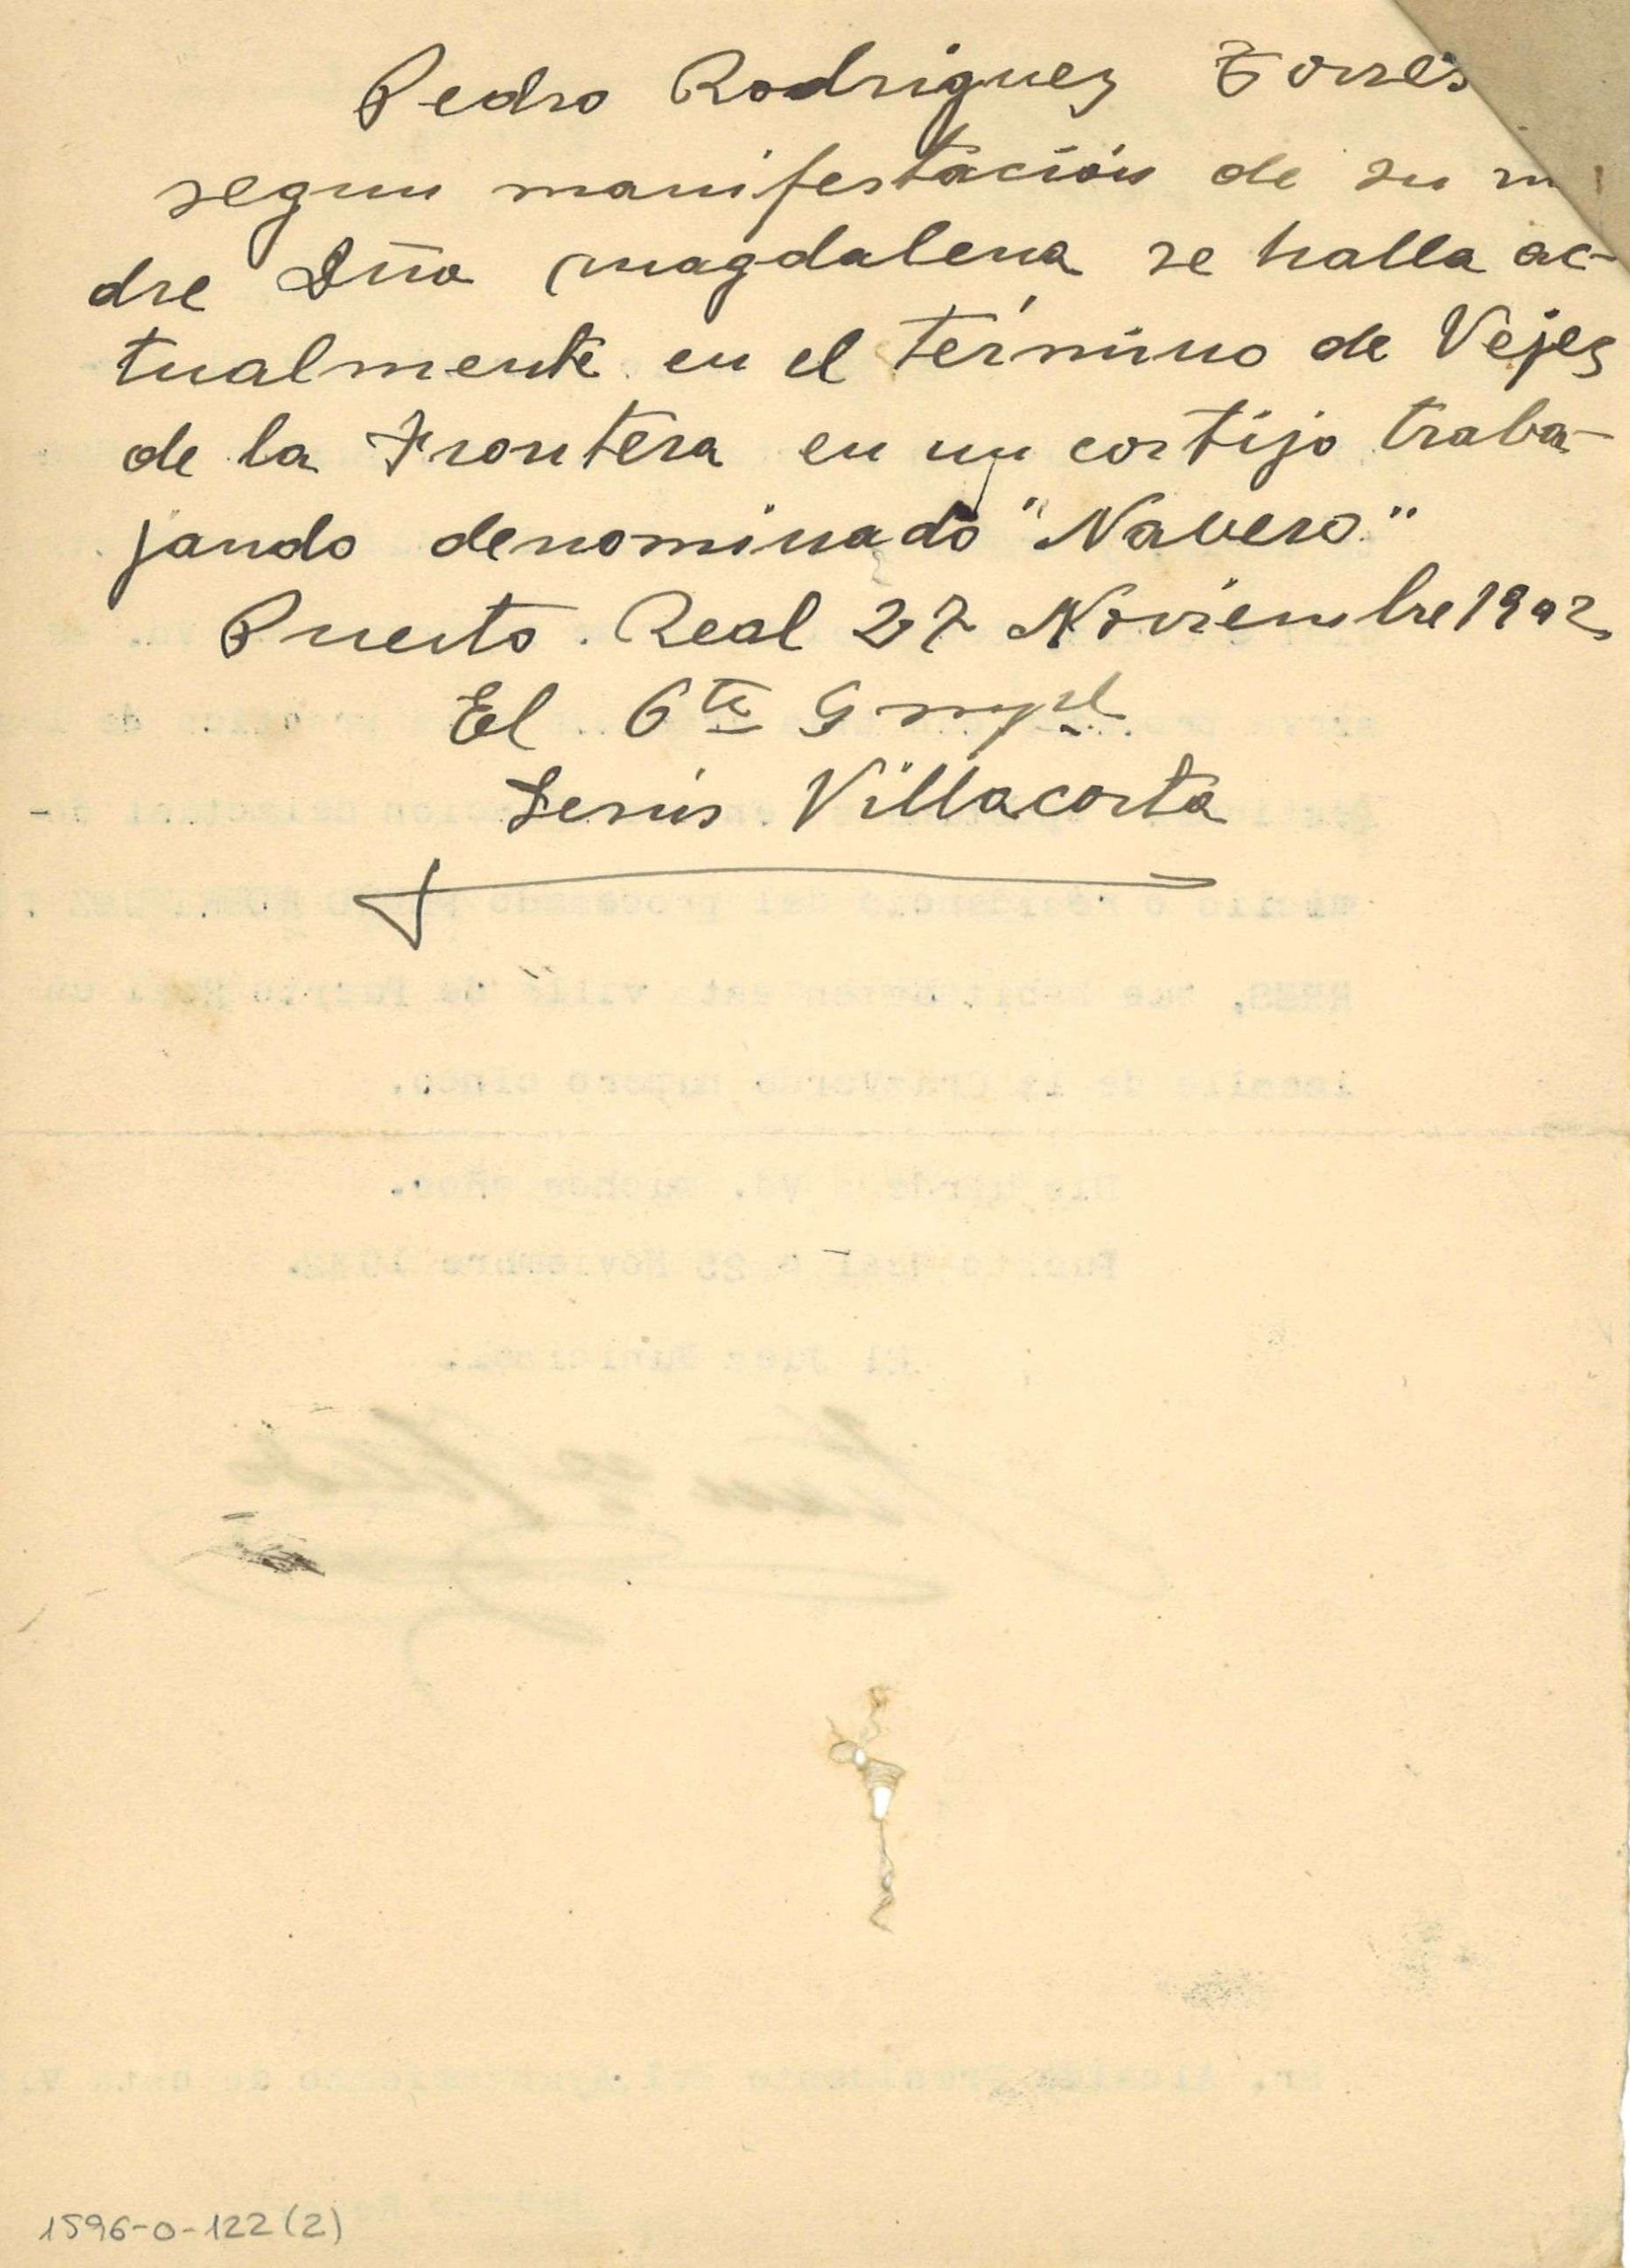 Pedro Rodriguez Torres
segun manifestación de su m
dre Dña magdalena se halla ac-
tualmente en el término de Vejez
de la Frontera en un cortijo traba-
jando denominado "Navero"
Puerto Real 27 Noviembre 1942
El
Jesús Villacorta
1596-0-122(2)